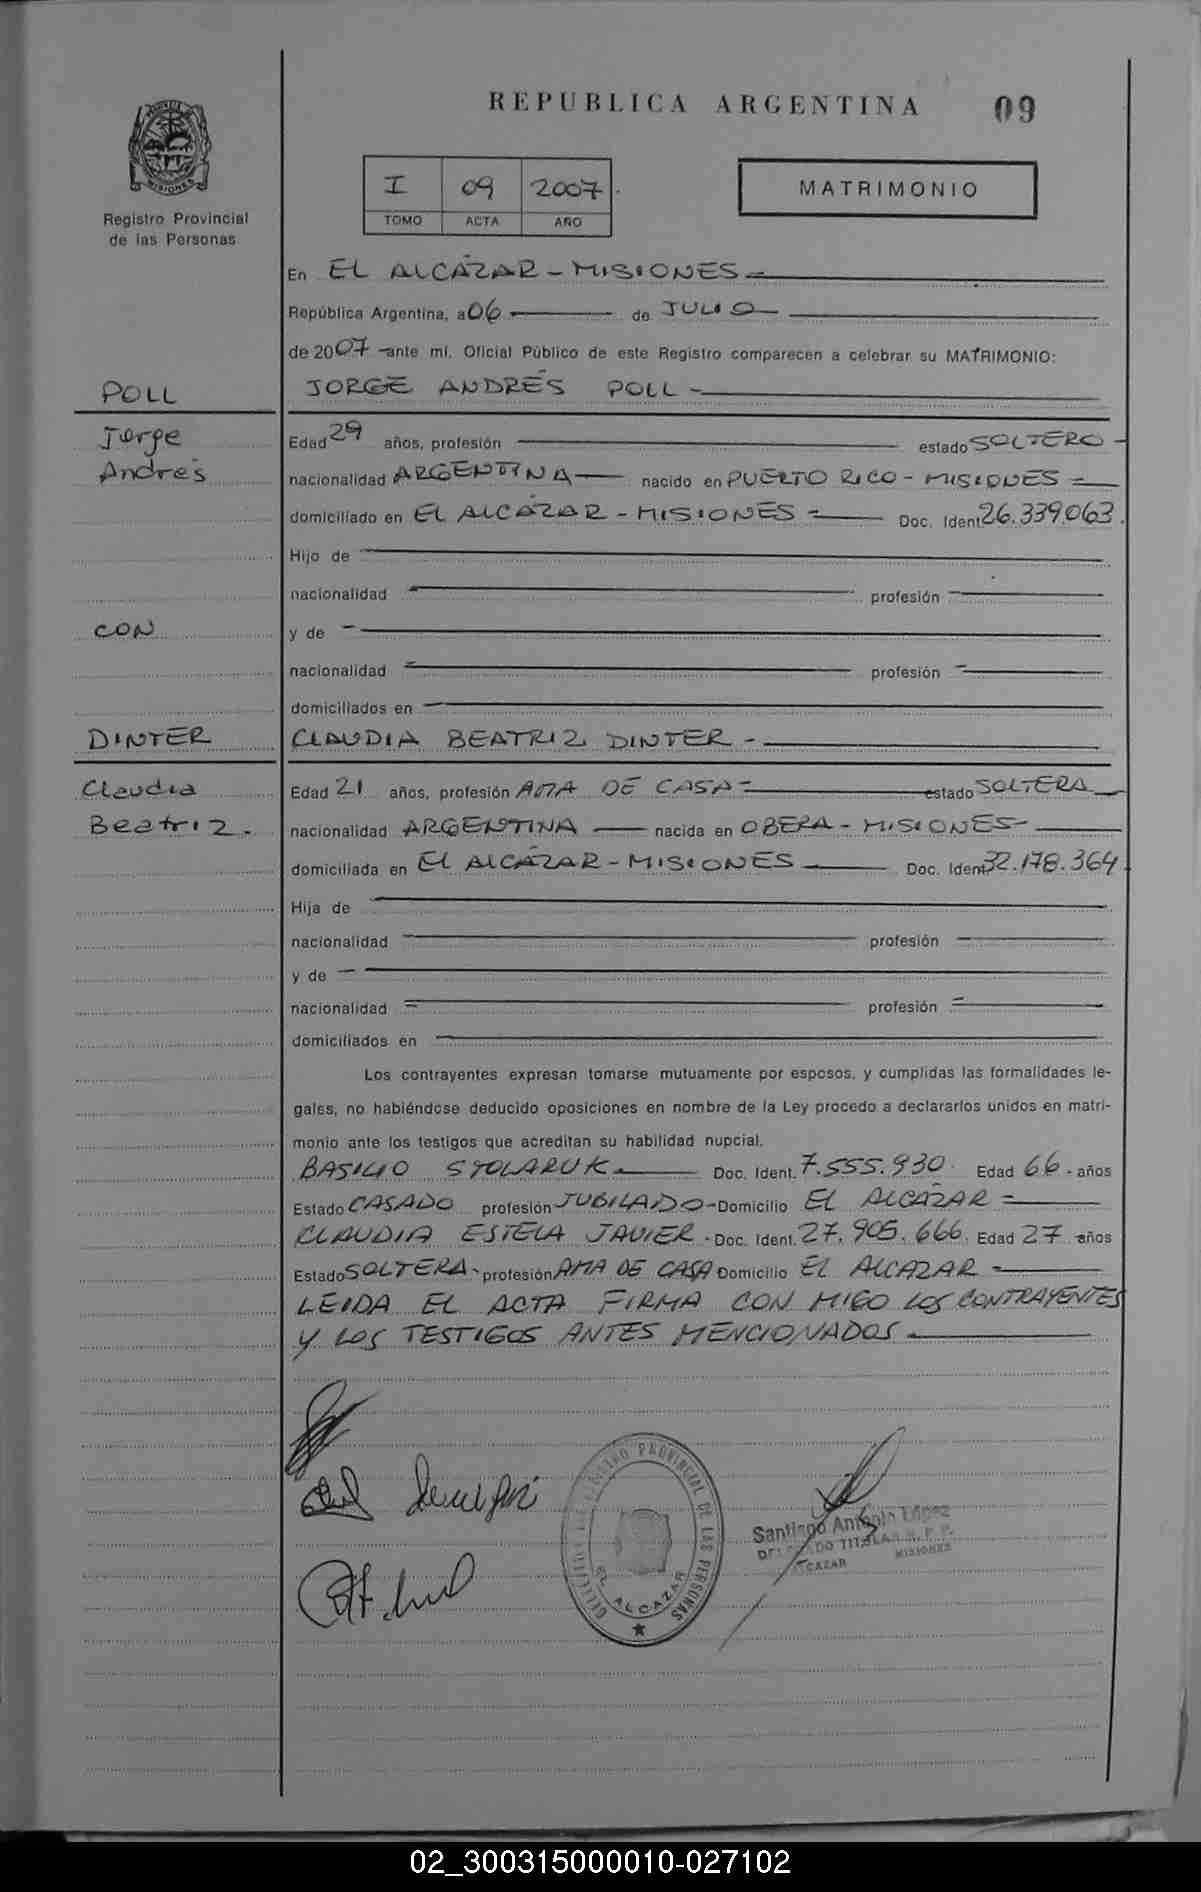 REPUBLICA ARGENTINA 09
MISIONES
Registro Provincial
de las Personas
I 09 2007
TOMO ACTA AÑO
MATRIMONIO
En EL ALCÁZAR - MISIONES
República Argentina, a 06 de JULIO
de 2007 ante mí, Oficial Público de este Registro comparecen a celebrar su MATRIMONIO:
POLL
JORGE ANDRÉS POLL
Jorge
Andrés
Edad 29 años, profesión estado SOLTERO
nacionalidad ARGENTINA nacido en PUERTO RICO - MISIONES
domiciliado en EL ALCÁZAR - MISIONES Doc. Ident. 26.339.063.
Hijo de
nacionalidad profesión
CON
y de
nacionalidad profesión
domiciliados en
DINTER
CLAUDIA BEATRIZ DINTER
Claudia
Beatriz.
Edad 21 años, profesión AMA DE CASA estado SOLTERA
nacionalidad ARGENTINA nacida en OBERA - MISIONES
domiciliada en EL ALCÁZAR - MISIONES Doc. Ident. 32.178.364
Hija de
nacionalidad profesión
y de
nacionalidad profesión
domiciliados en
Los contrayentes expresan tomarse mutuamente por esposos, y cumplidas las formalidades le-
gales, no habiéndose deducido oposiciones en nombre de la Ley procedo a declararlos unidos en matri-
monio ante los testigos que acreditan su habilidad nupcial.
BASILIO STOLARUK Doc. Ident. 7.555.930. Edad 66 años
Estado CASADO profesión JUBILADO Domicilio EL ALCAZAR
CLAUDIA ESTELA JAVIER Doc. Ident. 27.905.666. Edad 27 años
Estado SOLTERA profesión AMA DE CASA Domicilio EL ALCAZAR
LEIDA EL ACTA FIRMA CON MIGO LOS CONTRAYENTES
Y LOS TESTIGOS ANTES MENCIONADOS
REGISTRO PROVINCIAL DE LAS PERSONAS
EL ALCAZAR
Santiago Antonio López
DELEGADO TITULAR R. P. P.
ALCAZAR MISIONES
02_300315000010-027102